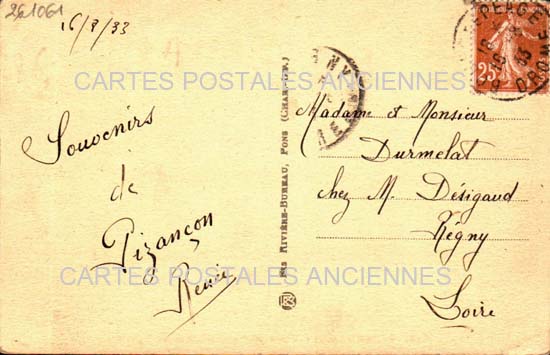 261061
16/8/33
CARTES POSTALES ANCIENNES
Souvenirs
de
Pizançon
Renée
Éts RIVIÈRE-BUREAU, PONS (CHAR.-INF.)
25
DROME
Madame et Monsieur
Durmelat
chez M. Désigaud
Régny
Loire
CARTES POSTALES ANCIENNES